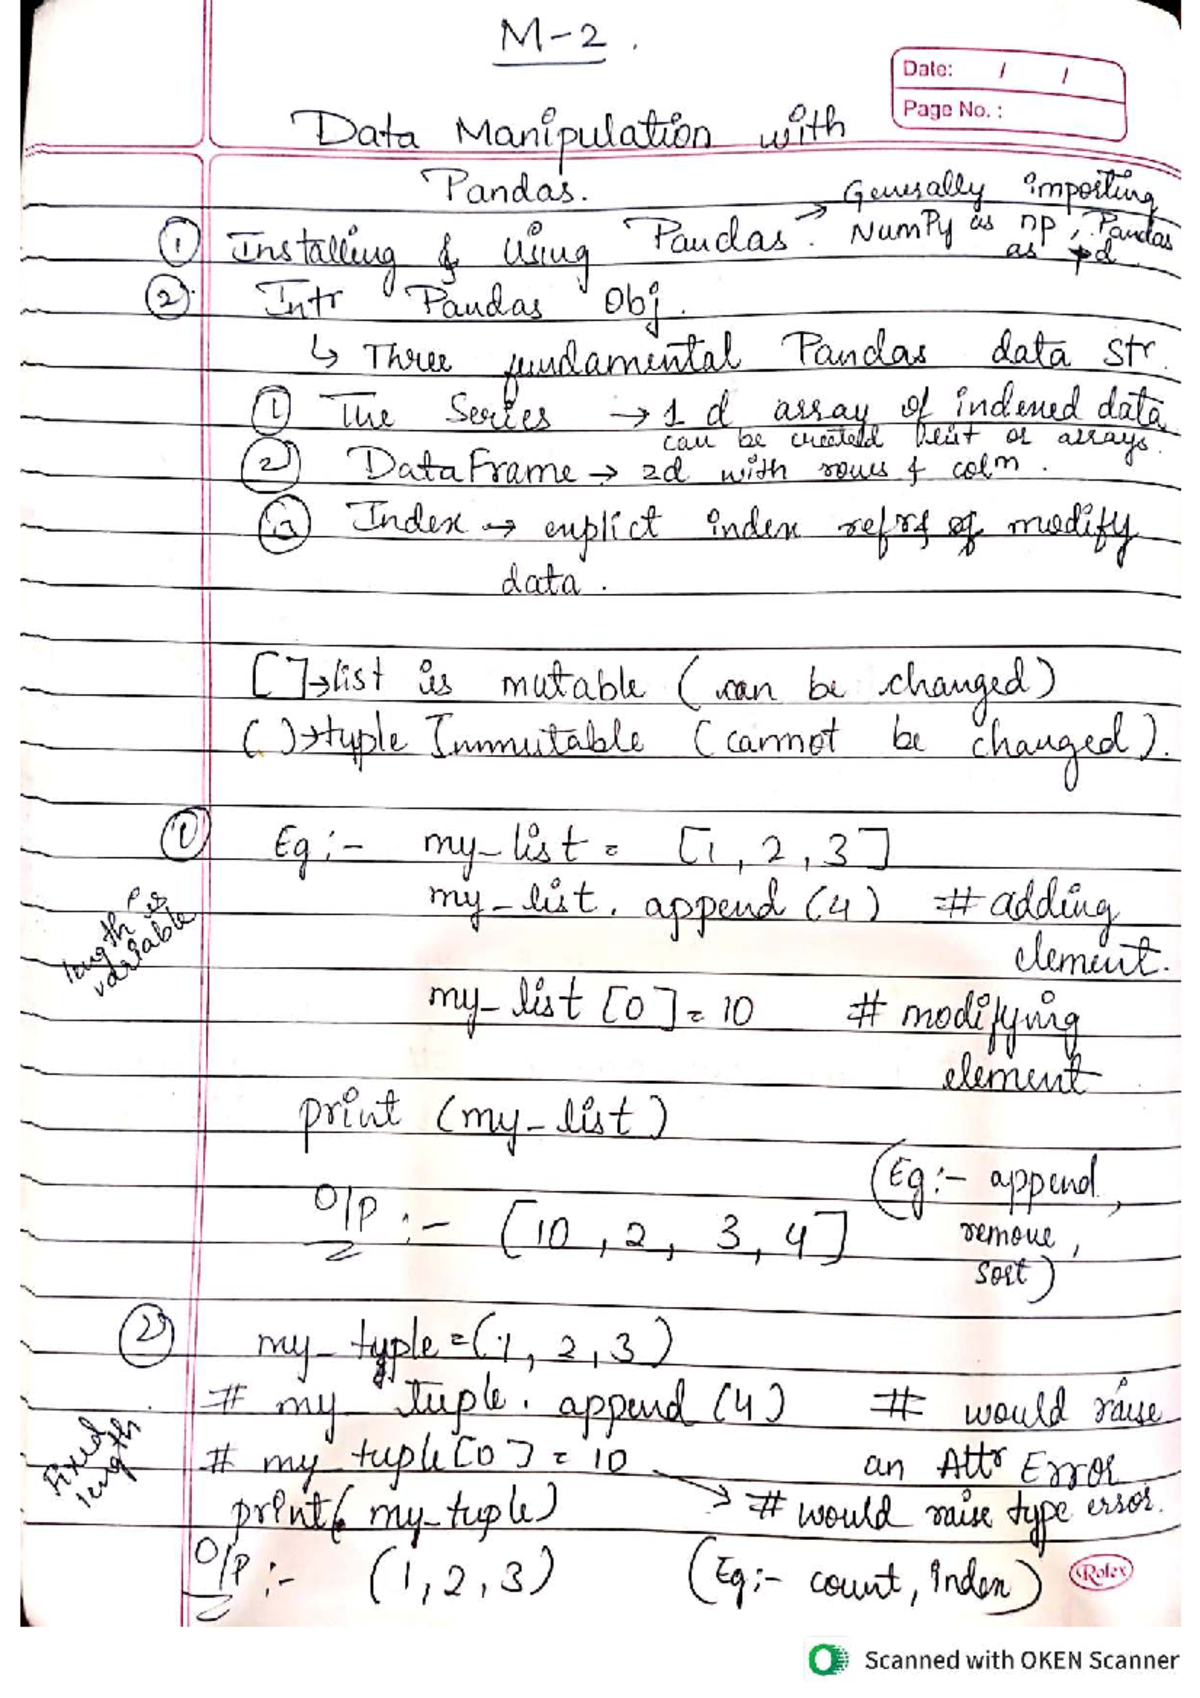 M-2.
Date: / /
Page No. :
Data Manipulation with
Pandas.
→ Generally importing
① Installing & Using Pandas. NumPy as np, Pandas
as pd
② Intr Pandas Obj.
↳ Three fundamental Pandas data str.
① The Series → 1 d array of indexed data
can be created list or arrays.
② DataFrame → 2d with rows & colm.
③ Index → explict index refrs of modify
data.
[ ]→list is mutable (can be changed)
( )→typle Immutable (cannot be changed).
① Eg:- my_list = [1, 2, 3]
my_list. append (4) # adding
element.
length is
variable
my_list [0] = 10 # modifying
element
print (my_list)
(Eg:- append,
O/P :- [10, 2, 3, 4]
remove,
sort)
② my_typle = (1, 2, 3)
# my_tuple. append (4) # would raise
# my tuple [0] = 10 an Attr Error
Fixed
length
print( my_tuple) → # would raise type error.
O/P :- (1, 2, 3) (Eg:- count, Index)
Rolex
Scanned with OKEN Scanner